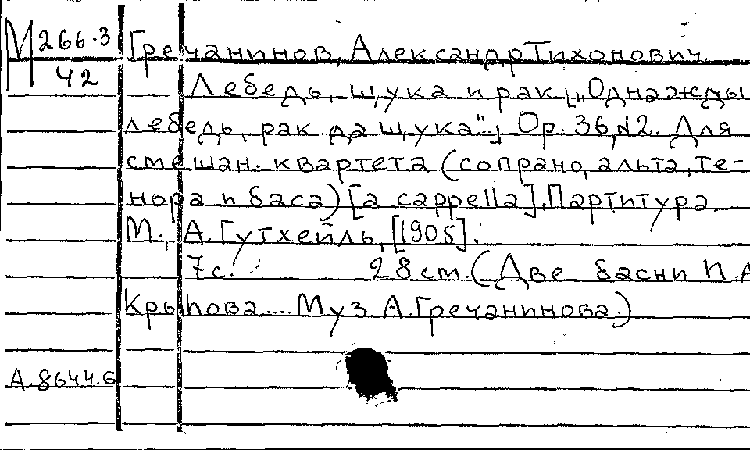 М 266.3
42
Гречанинов, Александр Тихонович.
Лебедь, щука и рак [„Однажды
лебедь, рак да щука"...] Ор. 36, №2. Для
смешан. квартета (сопрано, альта, те-
нора и баса) [a cappella]. Партитура.
М., А. Гутхейль, [1905].
7с. 28 см. (Две басни И. А.
Крылова... Муз А. Гречанинова.)
А.8644.6